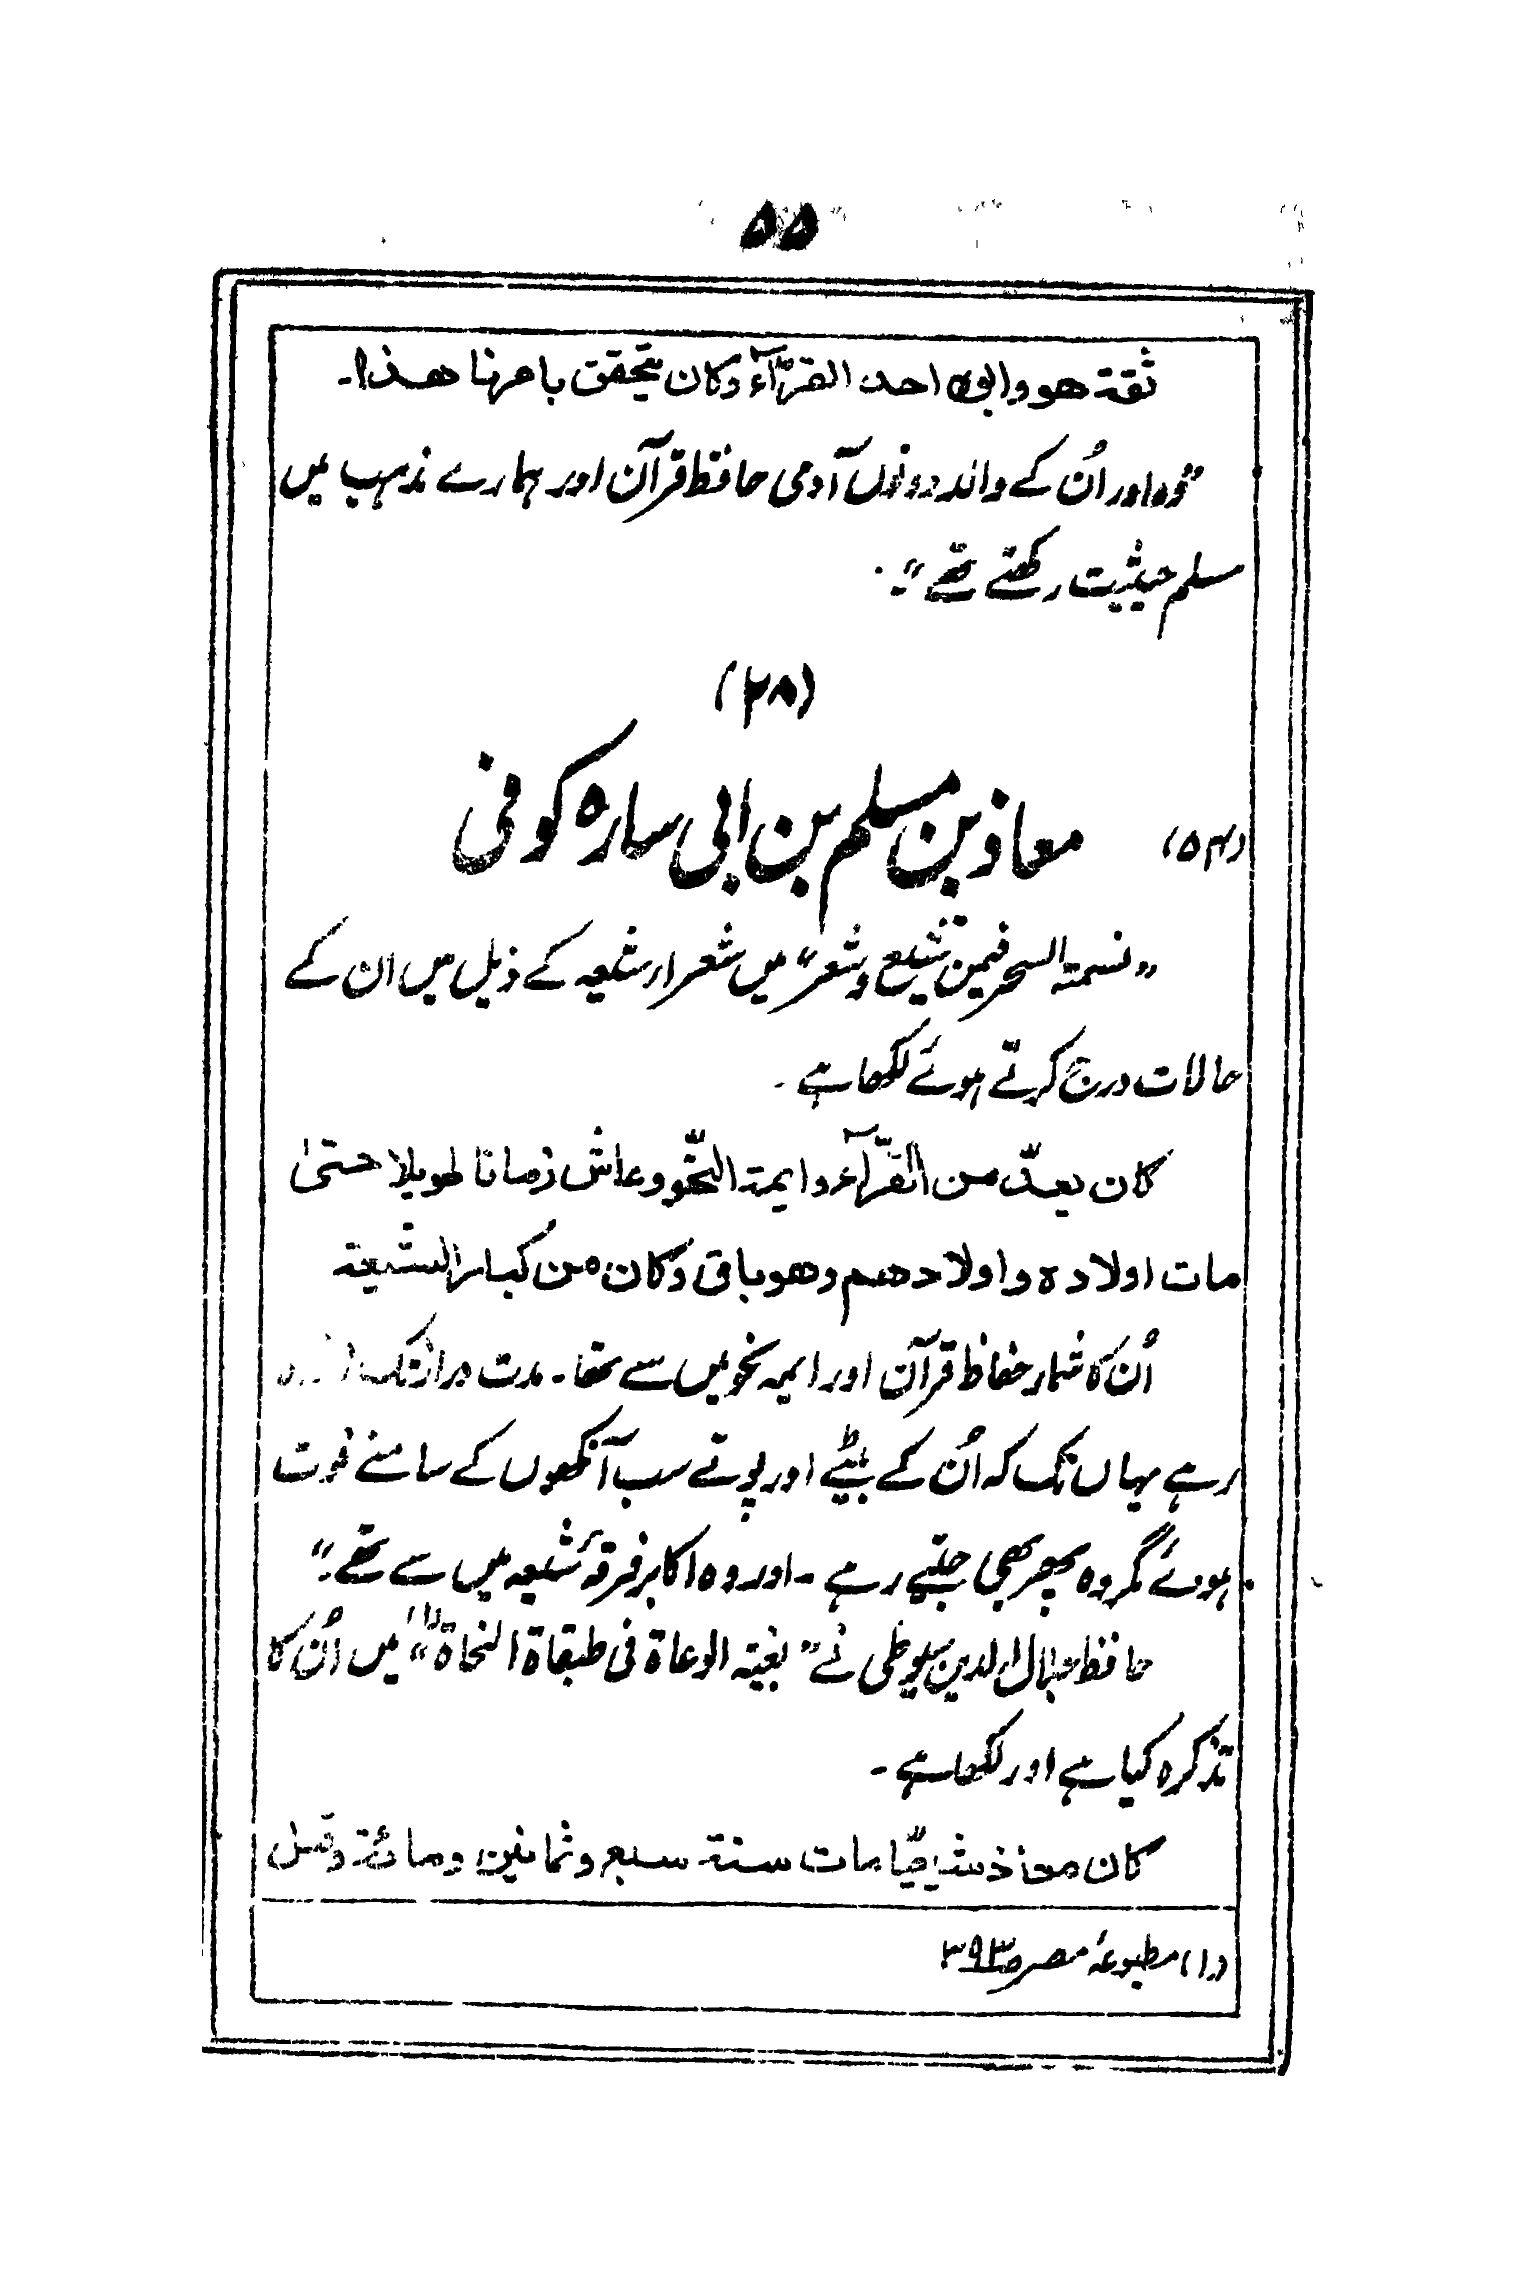 ۵۵
ثقة هو وابوه احد القرّآء وکان یتحقق بامرنا هذا۔
”وہ اور اُن کے والد دونوں آدمی حافظ قرآن اور ہمارے مذہب میں
مسلم حیثیت رکھتے تھے“۔
(۲۸)
(۵۴) معاذ بن مسلم بن ابی سارہ کوفی
”نسمتہ السحر فیمن تشیع وشعر“ میں شعراء شیعہ کے ذیل میں ان کے
حالات درج کرتے ہوئے لکھا ہے۔
کان یعدّ من القرّآء وایمة النّحو وعاش زمانا طویلا حتیٰ
مات اولادہ واولادھم وھو باق وکان من کبار الشیعة
اُن کا شمار حفاظ قرآن اور ایمہ نحو میں سے تھا۔ مدت دراز تک
رہے یہاں تک کہ اُن کے بیٹے اور پوتے سب آنکھوں کے سامنے فوت
ہوئے مگر وہ پھر بھی جیتے رہے۔ اور وہ اکابر فرقۂ شیعہ میں سے تھے۔“
حافظ جلال الدین سیوطی نے ”بغیتہ الوعاة فی طبقاة النحاة“(۱) میں اُن کا
تذکرہ کیا ہے اور لکھا ہے۔
کان معاذ شیعیّا مات سنة سبع وثمانین ومائة وقیل
(۱) مطبوعۂ مصر ص۳۹۳